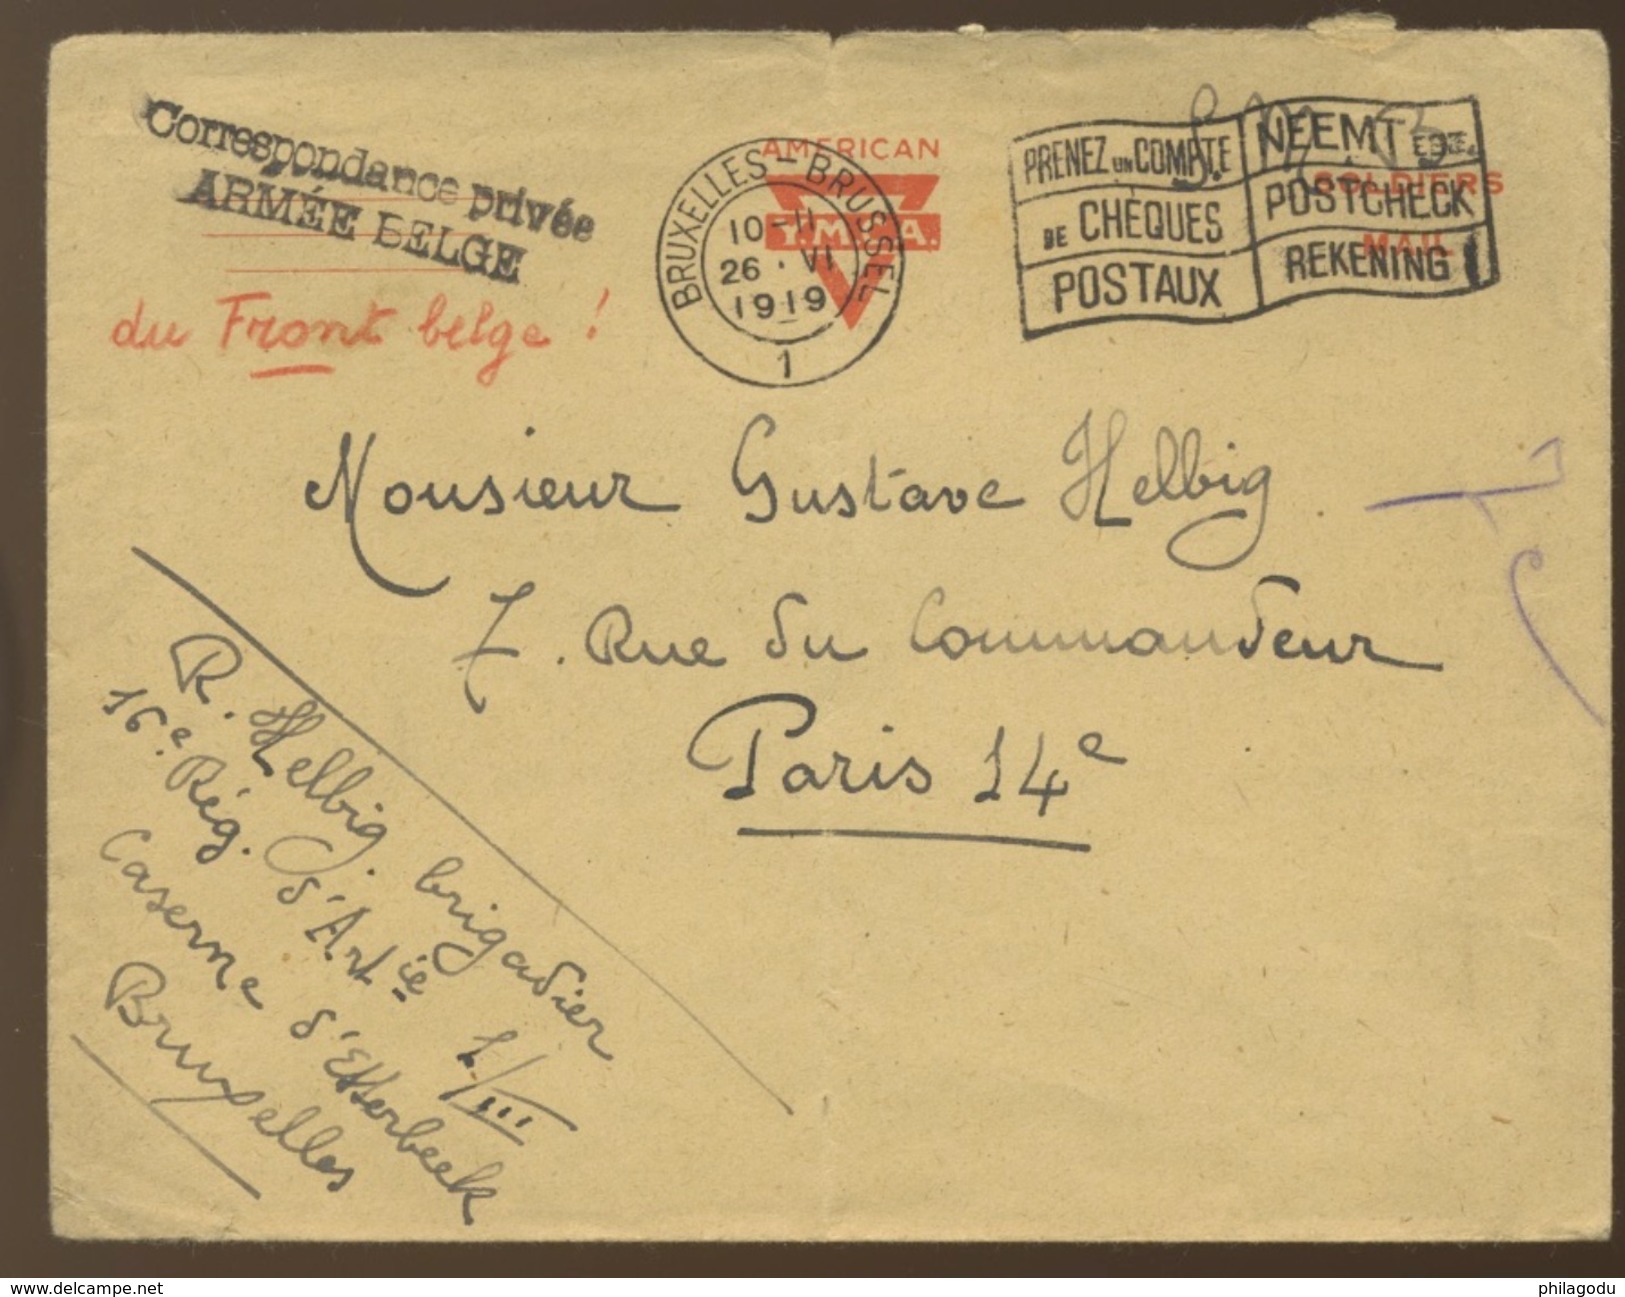 Correspondance privée
ARMÉE BELGE
du Front belge !
AMERICAN
Y.M.C.A.
BRUXELLES - BRUSSEL
10-11
26 · VI
1919
1
PRENEZ UN COMPTE
DE CHÈQUES
POSTAUX
NEEMT EENE
POSTCHECK
REKENING
S.M.
SOLDIERS
MAIL
Monsieur Gustave Helbig
7. Rue du Commandeur
Paris 14e
R. Helbig. brigadier
16e. Rég. d'Artie 1/III
Caserne d'Etterbeek
Bruxelles
delcampe.net
philagodu